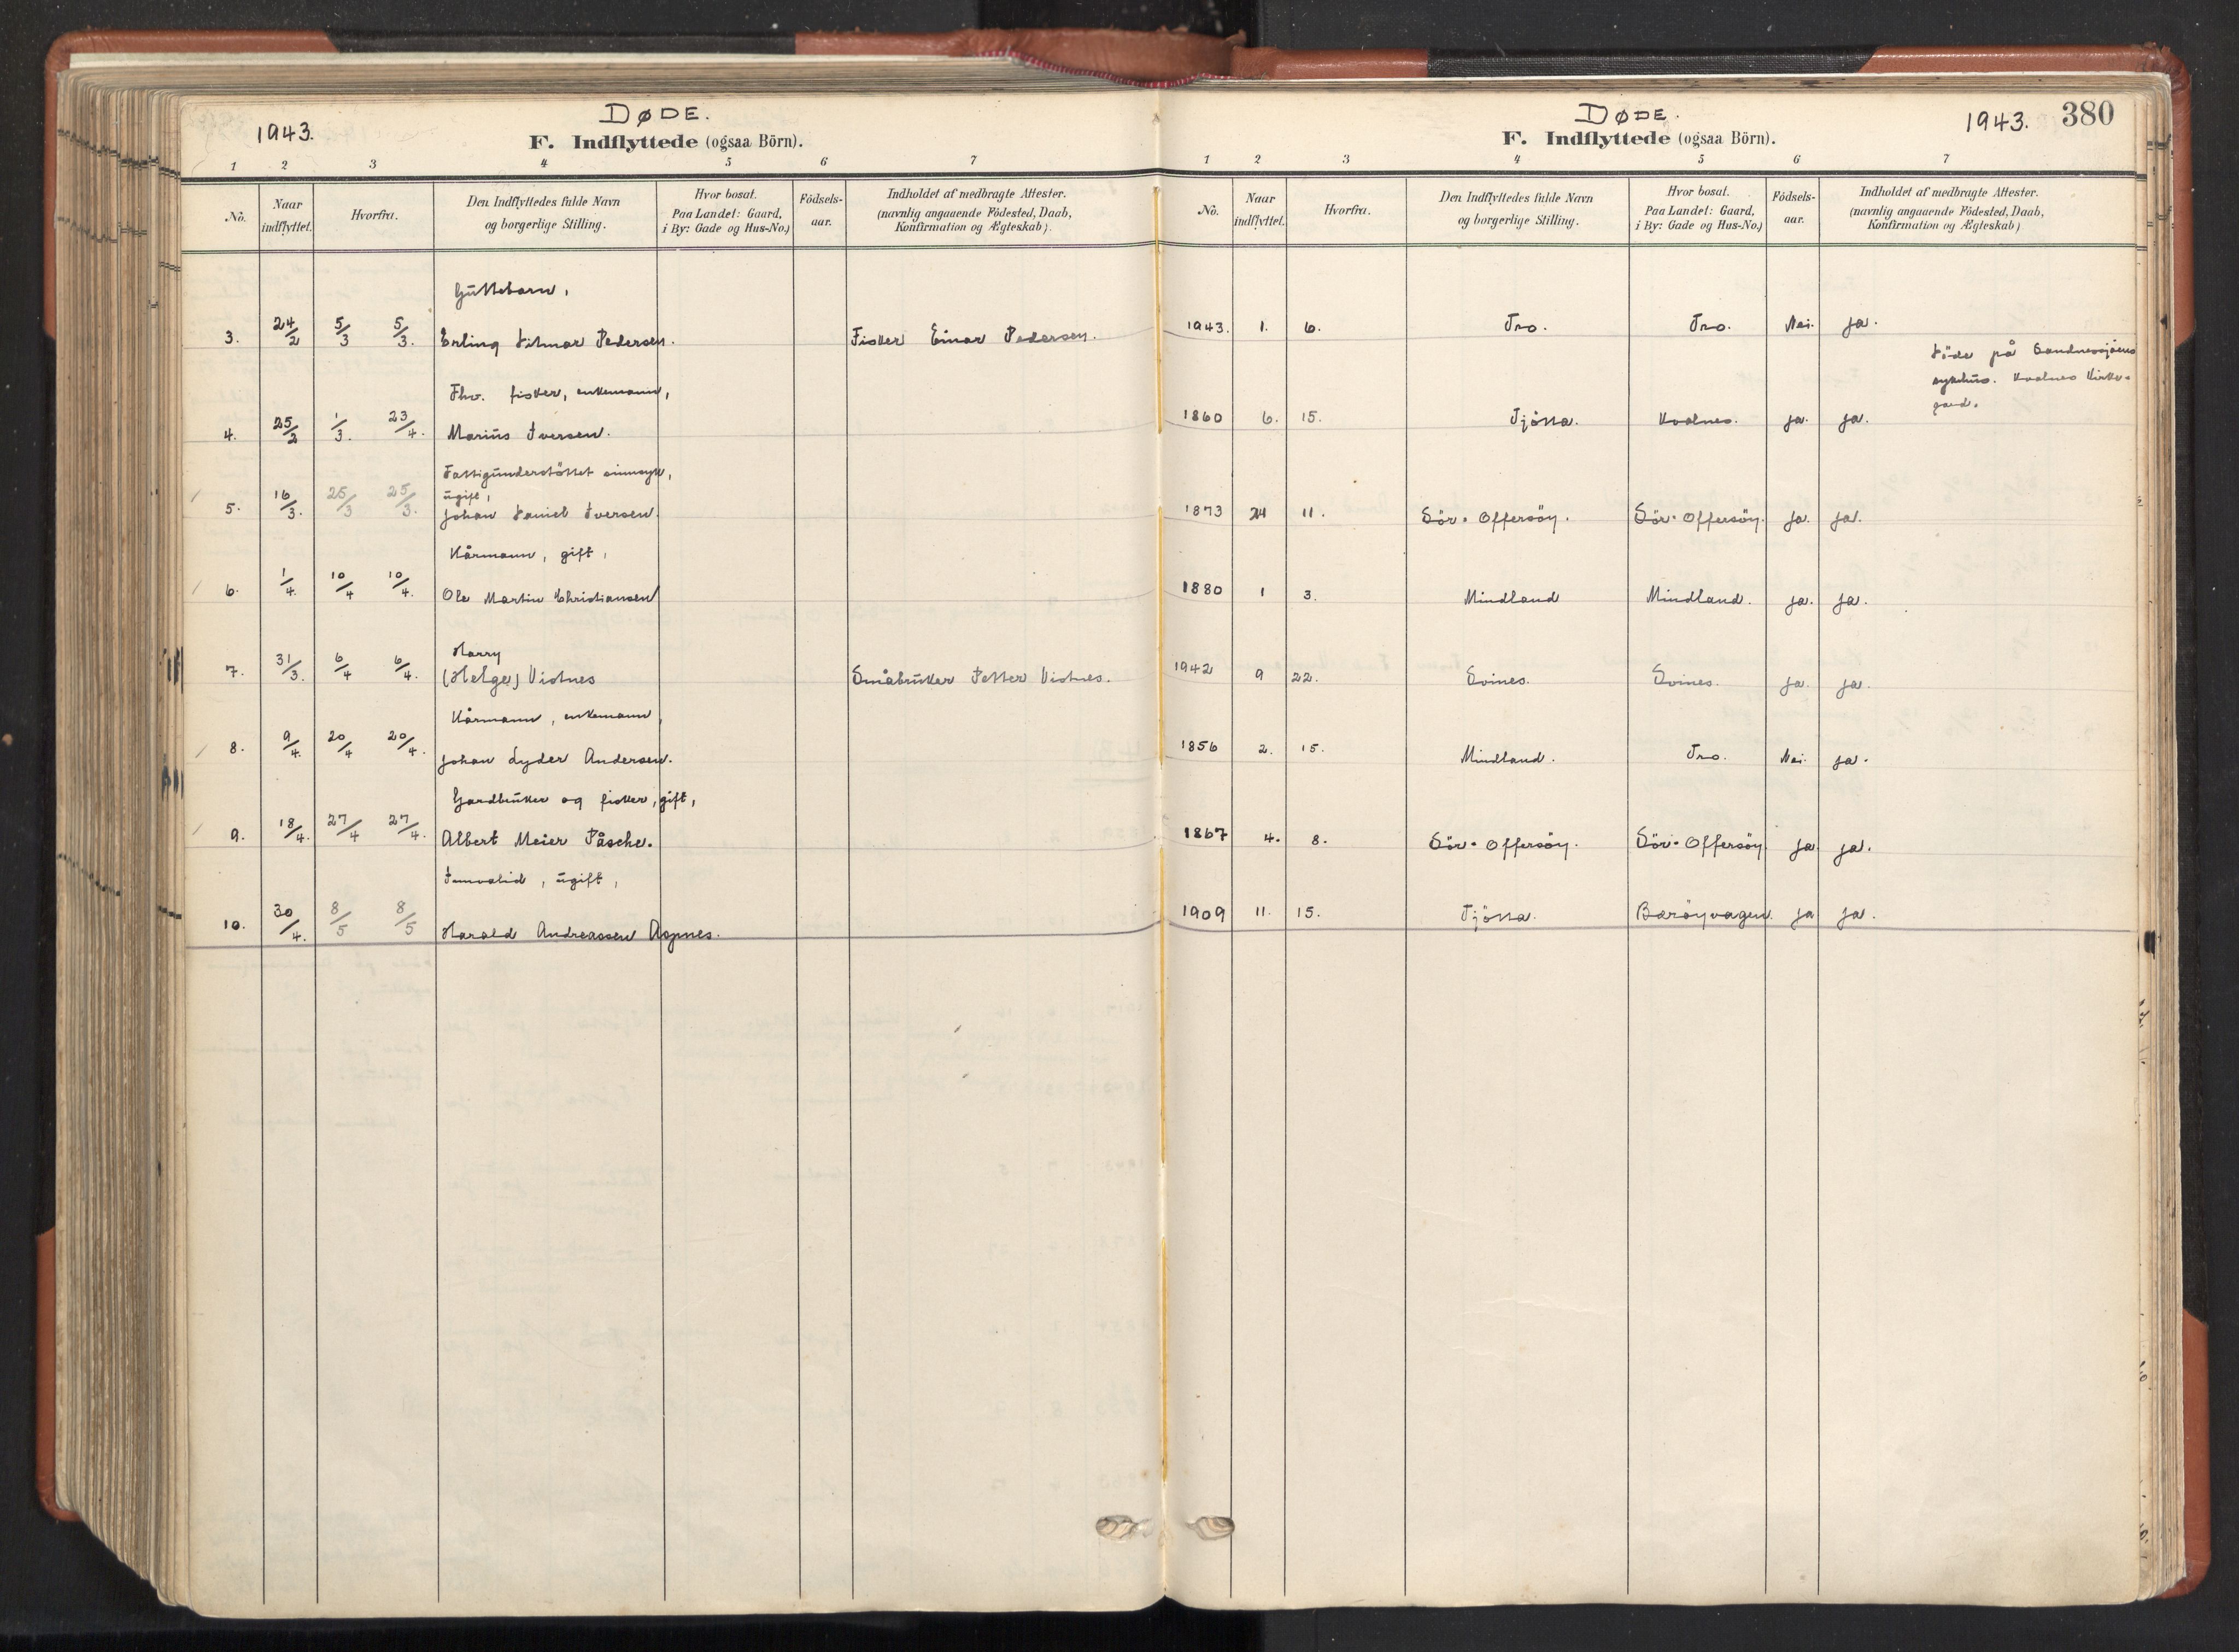 1943.
DØDE.
F. Indflyttede (ogsaa Börn).
1 2 3 4 5 6 7
No.
Naar indflyttet.
Hvorfra.
Den Indflyttedes fulde Navn
og borgerlige Stilling.
Hvor bosat.
Paa Landet: Gaard,
i By: Gade og Hus-No.)
Födsels-
aar.
Indholdet af medbragte Attester.
(navnlig angaaende Födested, Daab,
Konfirmation og Ægteskab).
Guttebarn,
3. 24/2 5/3 5/3. Erling Hilmar Pedersen. Fisker Einar Pedersen.
Fhv. fisker, enkemann,
4. 25/2 1/3. 23/4. Marius Iversen.
Fattigunderstöttet sinnsyk,
ugift,
5. 16/3. 25/3 25/3. Johan Daniel Iversen.
Kårmann, gift,
6. 1/4. 10/4 10/4. Ole Martin Christiansen
Harry
7. 31/3. 6/4 6/4. (Helge) Vistnes Småbruker Petter Vistnes.
Kårmann, enkemann,
8. 9/4. 20/4 20/4. Johan Lyder Andersen.
Gardbruker og fisker, gift,
9. 18/4. 27/4 27/4. Albert Meier Påsche.
Innvalid, ugift,
10. 30/4. 8/5 8/5 Harald Andreassen Aspnes.
DØDE.
1943. 380
F. Indflyttede (ogsaa Börn).
1 2 3 4 5 6 7
No.
Naar indflyttet.
Hvorfra.
Den Indflyttedes fulde Navn
og borgerlige Stilling.
Hvor bosat.
Paa Landet: Gaard,
i By: Gade og Hus-No.)
Födsels-
aar.
Indholdet af medbragte Attester.
(navnlig angaaende Födested, Daab,
Konfirmation og Ægteskab)
1943. 1. 6. Tro. Tro. Nei. ja.
Döde på Sandnessjøens
sykehus. Kvalnes Kirke-
gard.
1860 6. 15. Tjötta. Kvalnes. ja. ja.
1873 24 11. Sör-Offersöy. Sör-Offersöy. ja. ja.
1880 1 3. Mindland Mindland. ja. ja.
1942 9 22. Svines. Svines. ja. ja.
1856 2. 15. Mindland. Tro. Nei. ja.
1867 4. 8. Sör-Offersöy. Sör-Offersöy ja ja.
1909 11. 15. Tjötta. Bæröyvagen. ja ja.